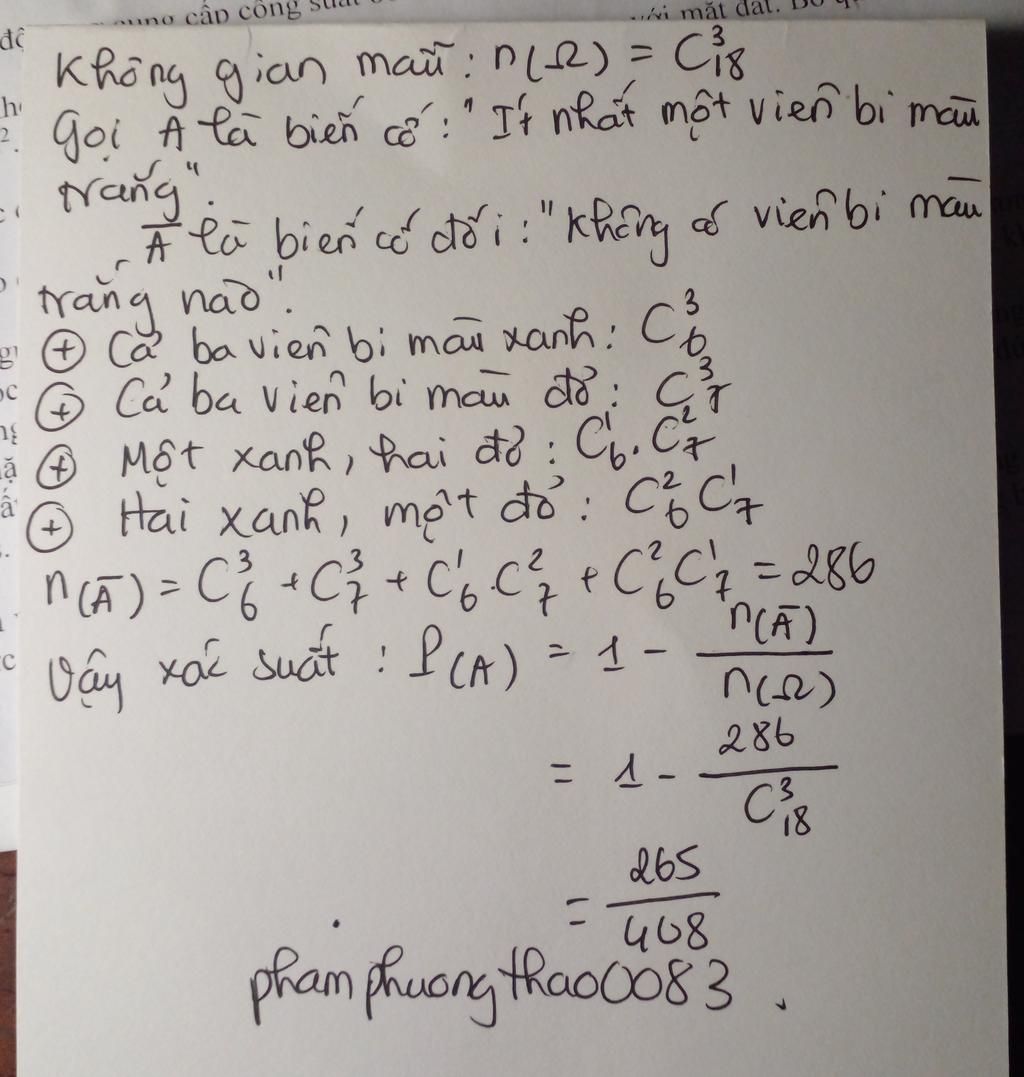 cung cấp công suất
với mặt đất. Bỏ q
Không gian mẫu : n(Ω) = C³₁₈
Gọi A là biến cố : "Ít nhất một viên bi màu
trắng".
A̅ là biến cố đối : "Không có viên bi màu
trắng nào".
⊕ Cả ba viên bi màu xanh : C³₆
⊕ Cả ba viên bi màu đỏ : C³₇
⊕ Một xanh, hai đỏ : C¹₆ . C²₇
⊕ Hai xanh, một đỏ : C²₆ C¹₇
n(A̅) = C³₆ + C³₇ + C¹₆ . C²₇ + C²₆ C¹₇ = 286
Vậy xác suất : P(A) = 1 - n(A̅) / n(Ω)
= 1 - 286 / C³₁₈
= 265 / 408
phamphuongthao0083 .